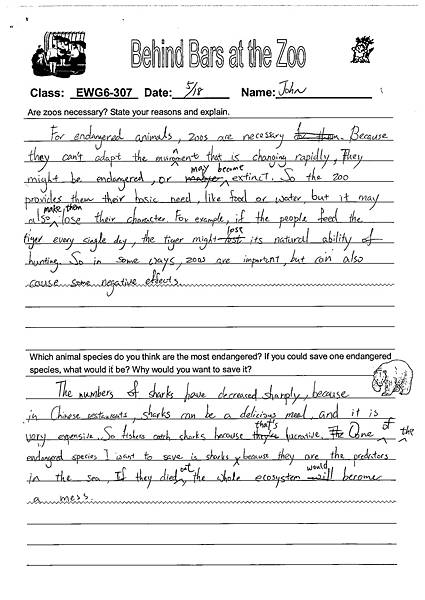 Behind Bars at the Zoo
Class: EWG6-307 Date: 5/18 Name: John
Are zoos necessary? State your reasons and explain.
For endangered animals, zoos are necessary. Because
they can't adapt the that is changing rapidly, They
might be endangered, or may become extinct. So the zoo
provides them their basic need, like food or water but it may
also make them lose their character. For example, if the people feed the
tiger every single day, the tiger might lose its natural ability of
hunting. So in some ways, zoos are important, but can also
cause some negative effects.
Which animal species do you think are the most endangered? If you could save one endangered
species, what would it be? Why would you want to save it?
The numbers of sharks have decreased sharply, because
in Chinese restaurants, sharks can be a delicious meal, and it is
very expensive. So fishers catch sharks because that's lucrative. One of the
endangered species I want to save is sharks, because they are the predators
in the sea. If they died out, the whole ecosystem would become
a mess.